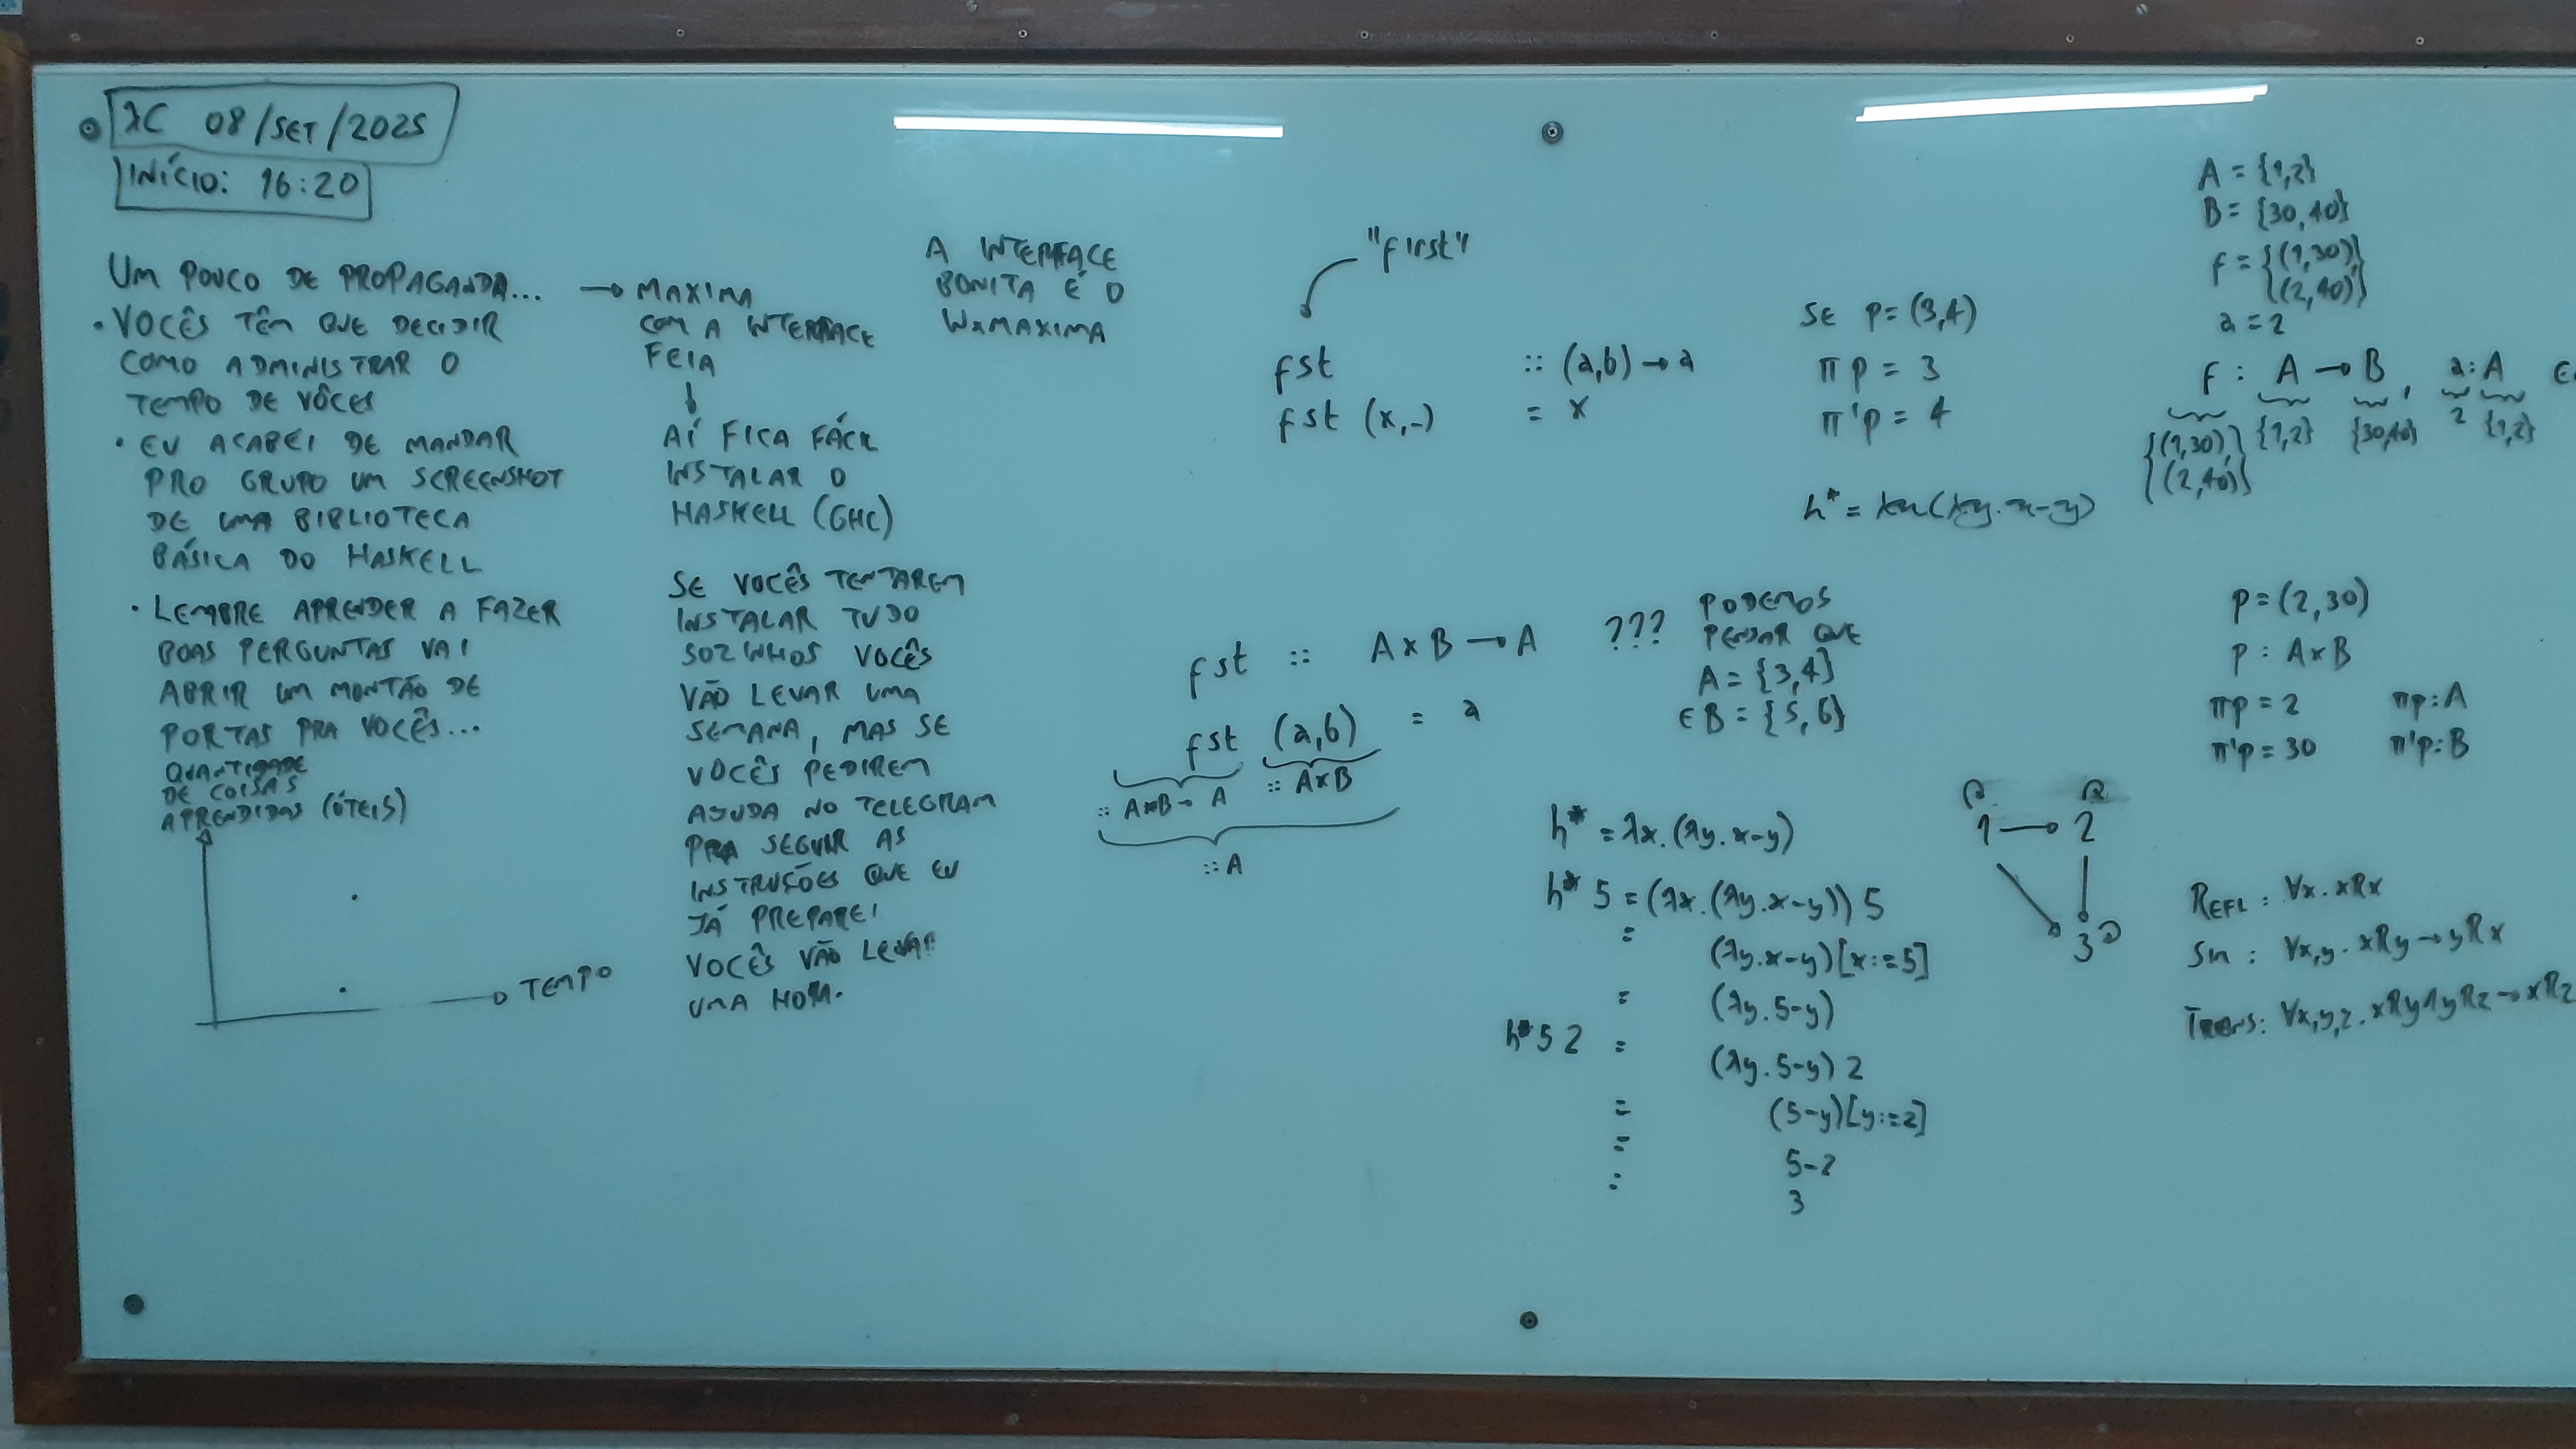 λC 08/SET/2025
INÍCIO: 16:20
UM POUCO DE PROPAGANDA...
• VOCÊS TÊM QUE DECIDIR
COMO ADMINISTRAR O
TEMPO DE VÔCES
• EU ACABEI DE MANDAR
PRO GRUPO UM SCREENSHOT
DE UMA BIBLIOTECA
BÁSICA DO HASKELL
• LEMBRE APRENDER A FAZER
BOAS PERGUNTAS VAI
ABRIR UM MONTÃO DE
PORTAS PRA VOCÊS...
QUANTIDADE
DE COISAS
APRENDIDAS (ÚTEIS)
TEMPO
→ MAXIMA
COM A INTERFACE
FEIA
↓
AÍ FICA FÁCIL
INSTALAR O
HASKELL (GHC)
SE VOCÊS TENTAREM
INSTALAR TUDO
SOZINHOS VOCÊS
VÃO LEVAR UMA
SEMANA, MAS SE
VOCÊS PEDIREM
AJUDA NO TELEGRAM
PRA SEGUIR AS
INSTRUÇÕES QUE EU
JÁ PREPAREI
VOCÊS VÃO LEVAR
UMA HORA.
A INTERFACE
BONITA É O
WxMAXIMA
"first"
fst :: (a,b) → a
fst (x,_) = x
fst :: A×B → A ???
fst (a,b) = a
:: A×B → A :: A×B
:: A
PODEMOS
PENSAR QUE
A = {3,4}
E B = {5,6}
SE p = (3,4)
π p = 3
π'p = 4
h* = λx(λy.x-y)
h* = λx.(λy.x-y)
h* 5 = (λx.(λy.x-y)) 5
= (λy.x-y)[x:=5]
= (λy.5-y)
h* 5 2 = (λy.5-y) 2
= (5-y)[y:=2]
= 5-2
= 3
1 → 2
3
A = {1,2}
B = {30,40}
f = {(1,30),
(2,40)}
a = 2
f : A → B, a : A
{(1,30), {1,2} {30,40} 2 {1,2}
(2,40)}
p = (2,30)
p : A×B
πp = 2 πp : A
π'p = 30 π'p : B
REFL : ∀x. xRx
SIM : ∀x,y. xRy → yRx
TRANS : ∀x,y,z. xRy∧yRz → xRz